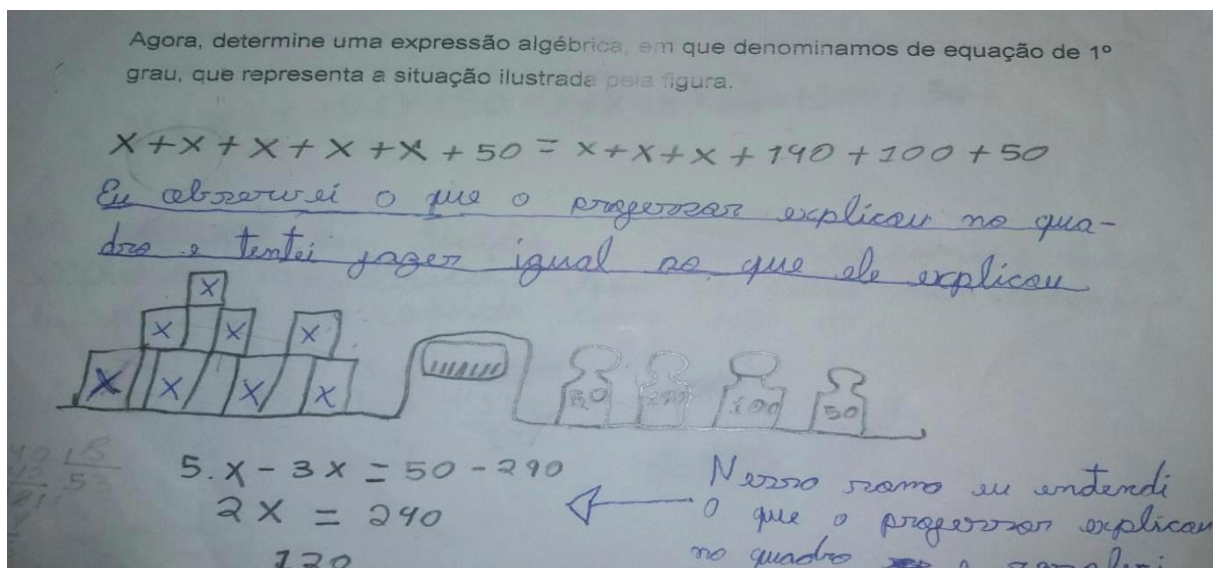 Agora, determine uma expressão algébrica, em que denominamos de equação de 1º
grau, que representa a situação ilustrada pela figura.
x + x + x + x + x + 50 = x + x + x + 140 + 100 + 50
Eu observei o que o professor explicou no qua-
dro e tentei fazer igual ao que ele explicou
X
X X X
X X X X
50 100 50
5.x - 3x = 50 - 290
2x = 240
120
Nesso eu entendi
o que o professor explicou
no quadro